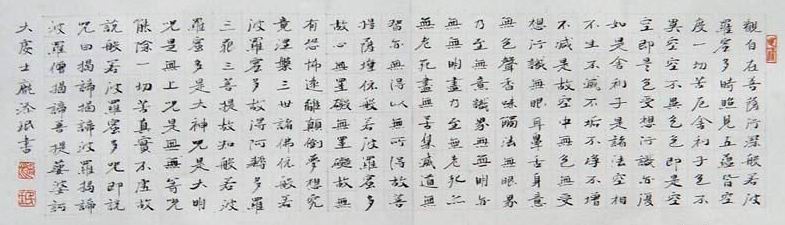 觀自在菩薩行深般若波
羅蜜多時照見五蘊皆空
度一切苦厄舍利子色不
異空空不異色色即是空
空即是色受想行識亦復
如是舍利子是諸法空相
不生不滅不垢不淨不增
不減是故空中無色無受
想行識無眼耳鼻舌身意
無色聲香味觸法無眼界
乃至無意識界無無明亦
無無明盡乃至無老死亦
無老死盡無苦集滅道無
智亦無得以無所得故菩
提薩埵依般若波羅蜜多
故心無罣礙無罣礙故無
有恐怖遠離顛倒夢想究
竟涅槃三世諸佛依般若
波羅蜜多故得阿耨多羅
三藐三菩提故知般若波
羅蜜多是大神咒是大明
咒是無上咒是無等等咒
能除一切苦真實不虛故
說般若波羅蜜多咒即說
咒曰揭諦揭諦波羅揭諦
波羅僧揭諦菩提薩婆訶
大慶士龐添珉書